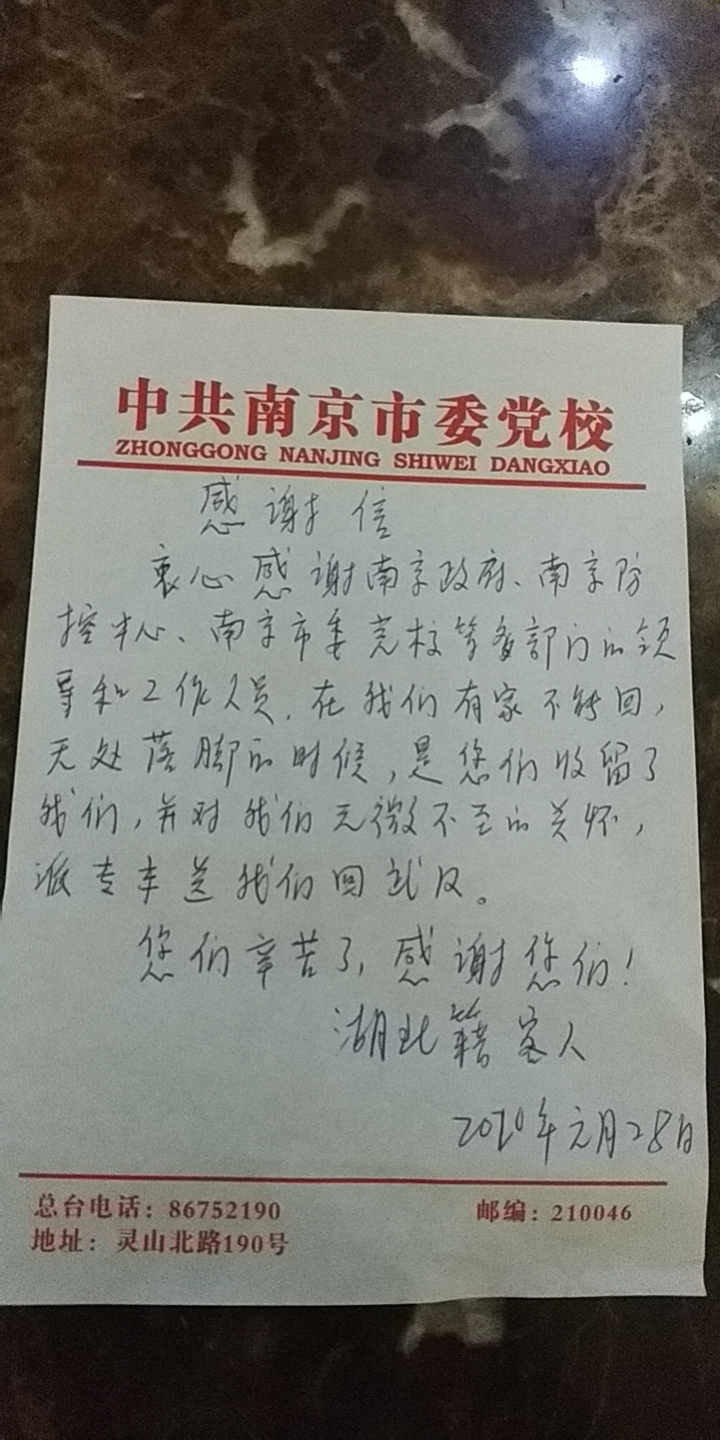 中共南京市委党校
ZHONGGONG NANJING SHIWEI DANGXIAO
感谢信
衷心感谢南京政府、南京防
控中心、南京市委党校等各部门的领
导和工作人员,在我们有家不能回,
无处落脚的时候,是您们收留了
我们,并对我们无微不至的关怀,
派专车送我们回武汉。
您们辛苦了,感谢您们!
湖北籍客人
2020年元月28日
总台电话:86752190
邮编:210046
地址:灵山北路190号